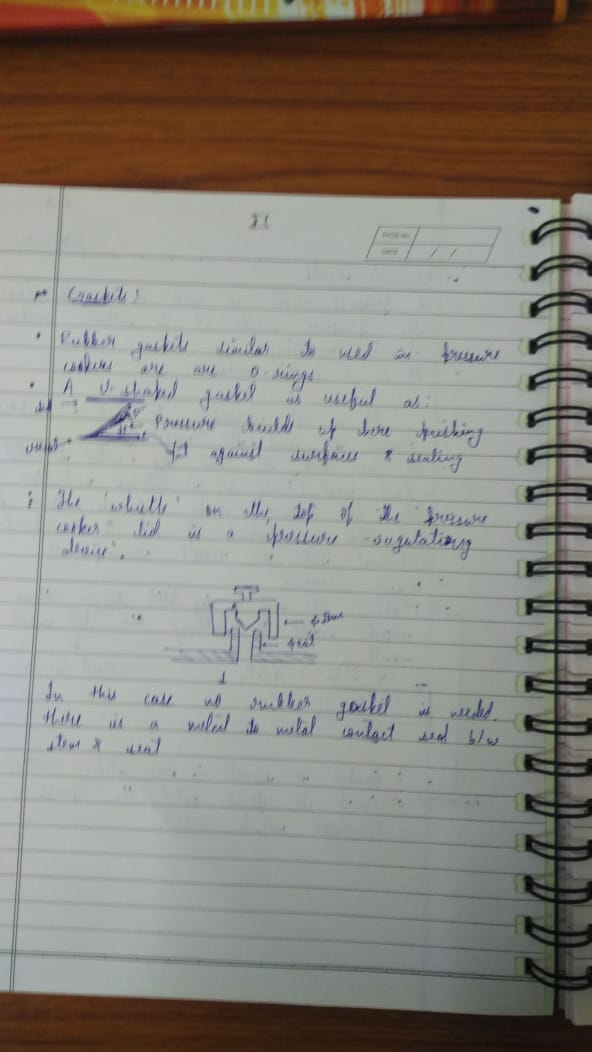 PAGE NO
DATE / /
Gaskets:
• Rubber gaskets similar to used in pressure
cookers are are O-rings
• A V-shaped gasket is useful as:
lid →
Pressure builds up here pushing
it against surfaces & sealing
The 'whistle' on the top of the pressure
cooker lid is a pressure regulationg
device.
← stem
← seat
In this case no rubber gasket is needed.
there is a metal to metal contact seal b/w
stem & seat